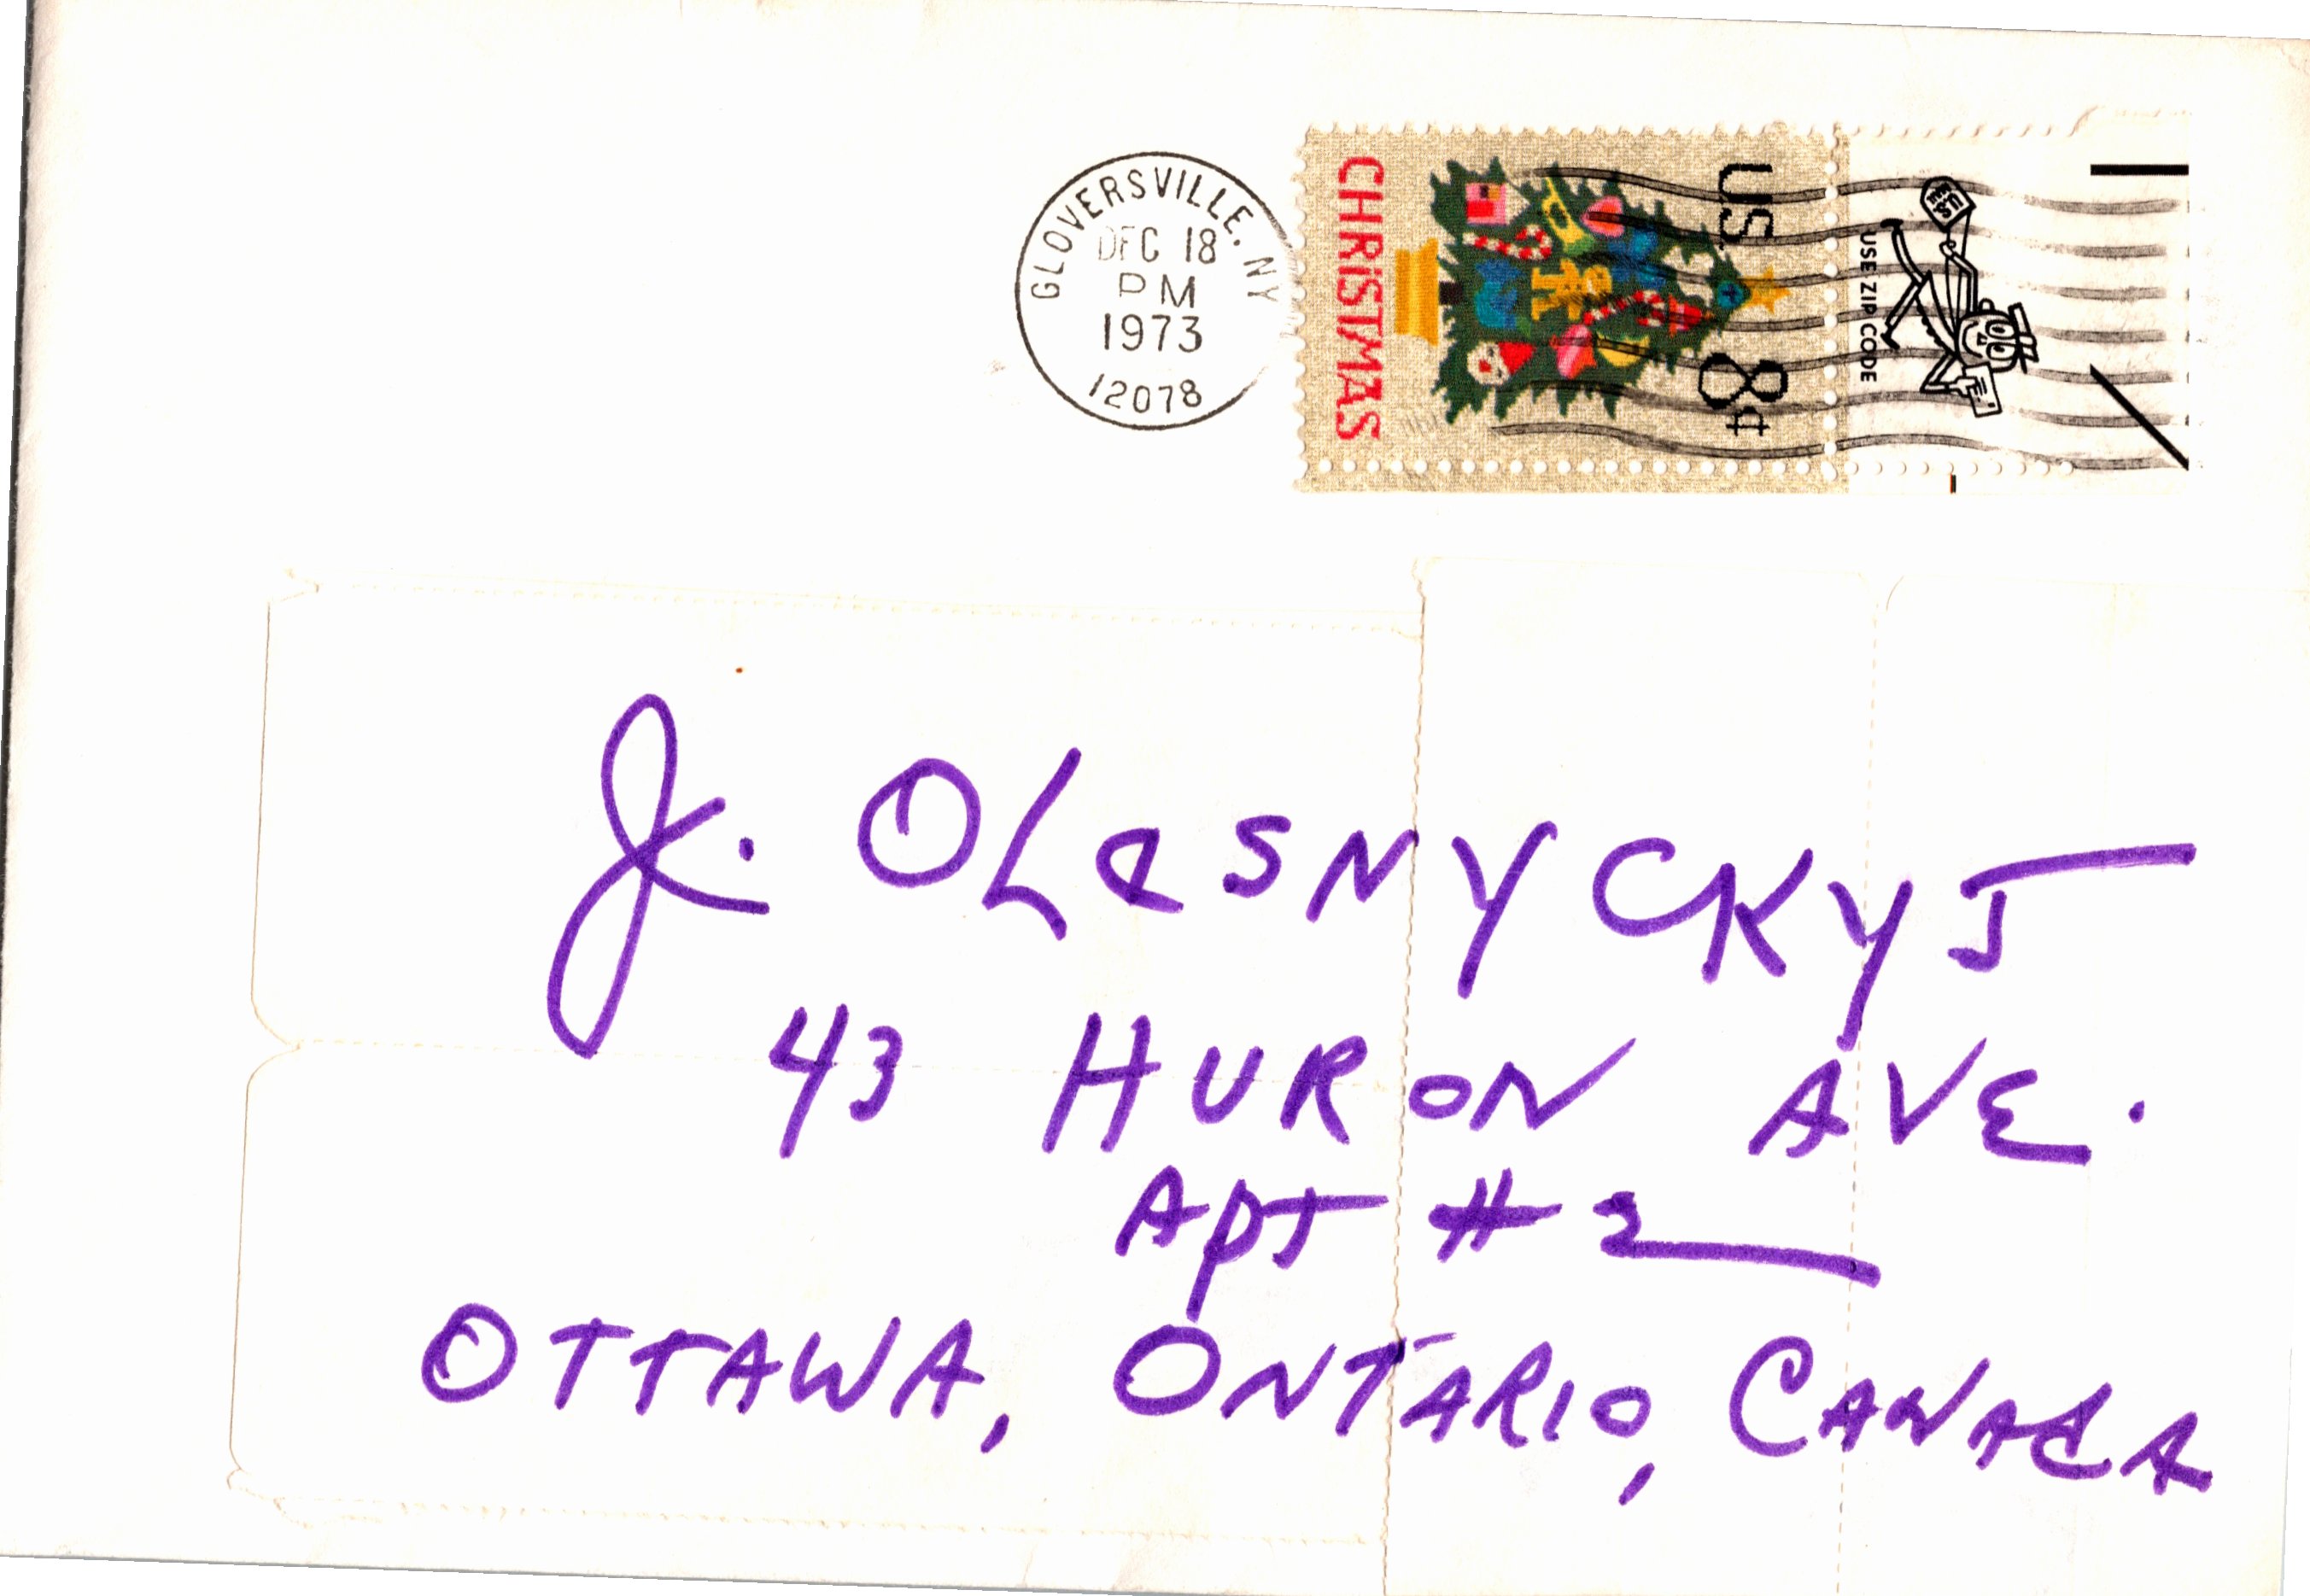 GLOVERSVILLE, NY
DEC 18
PM
1973
12078
CHRISTMAS
US
8¢
USE ZIP CODE
U.S.
MAIL
J. OLeSNYCKYJ
43 HURON AVE.
APT #2
OTTAWA, ONTARIO, CANADA